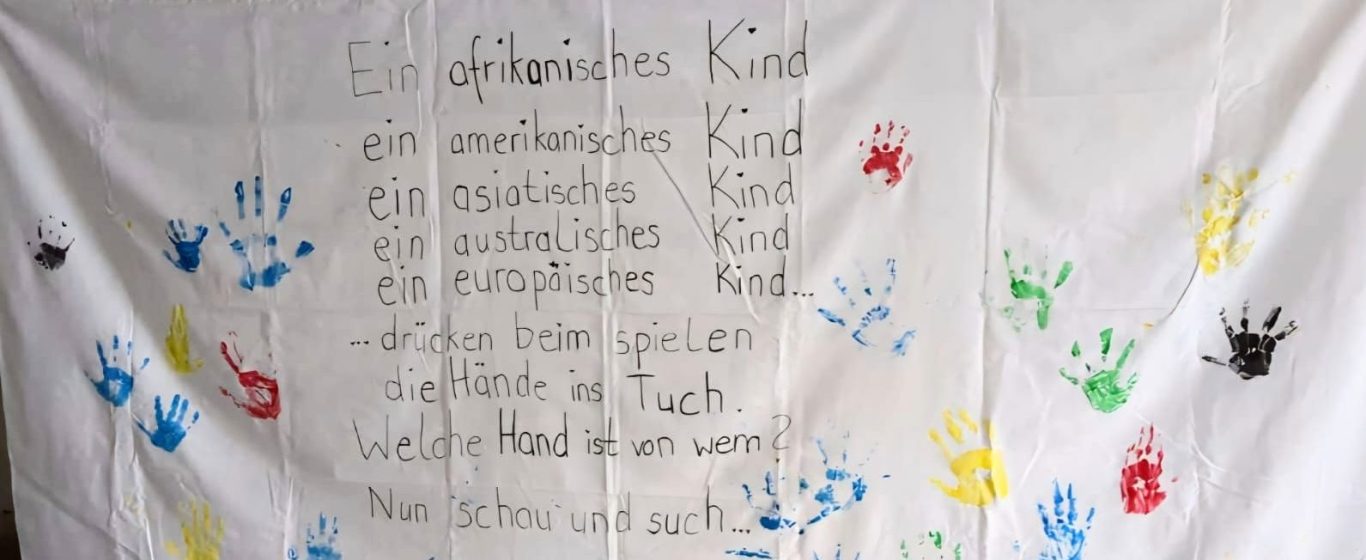 Ein afrikanisches Kind
ein amerikanisches Kind
ein asiatisches Kind
ein australisches Kind
ein europäisches Kind...
... drücken beim spielen
die Hände ins Tuch.
Welche Hand ist von wem?
Nun schau und such...